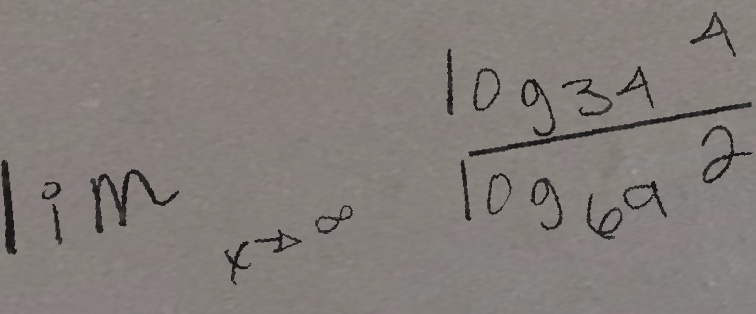 lim x→∞ log34 4
log69 2